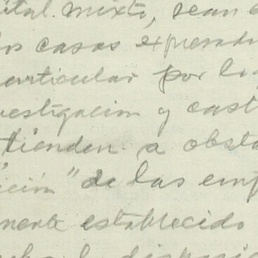 ital mixto, sean
casas expend
articular por l
vestigacion y cast
tienden a obst
ición" de las emp
mente establecido